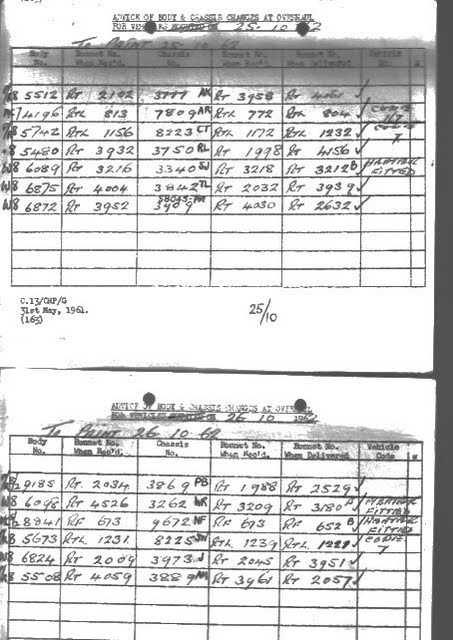 ADVICE OF BODY & CHASSIS CHANGES AT OVERHAUL
FOR VEHICLES 25-10 2
To PAINT 25-10-62
Body No. Bonnet No. When Rec'd. Chassis No. Bonnet No. When Rec'd. Bonnet No. When Delivered Vehicle Code
R8 5512 RT 2102 3777 AK RT 3958 RT 4061 ✓
4196 RTL 813 7809 AR RTL 772 RTL 804 ✓ CODE
R8 5742 RTL 1156 8223 CT RTL 1172 RTL 1232 ✓ CODE 7
8 5480 RT 3932 3750 RL RT 1998 RT 4156 ✓
W8 6089 RT 3216 3340 SJ RT 3218 RT 3212 B ✓ HEATER FITTED
W8 6875 RT 4004 3842 TL RT 2032 RT 3939 ✓
W8 6872 RT 3952 3909 RT 4030 RT 2632 ✓
C.13/CHP/G
31st May, 1961.
(163)
25/10
ADVICE OF BODY & CHASSIS CHANGES AT OVERHAUL
FOR VEHICLES 26-10 196
To PAINT 26-10-62
Body No. Bonnet No. When Rec'd. Chassis No. Bonnet No. When Rec'd. Bonnet No. When Delivered Vehicle Code
9185 RT 2034 3869 PB RT 1988 RT 2529 ✓
W8 6098 RT 4526 3262 RT 3209 RT 3180 ✓ HEATER FITTED
8841 RF 673 9672 NF RF 673 RF 652 B ✓ HEATER FITTED
R8 5673 RTL 1231 8225 RTL 1239 RTL 1221 ✓ CODE 7
W8 6824 RT 2009 3973 J RT 2045 RT 3951 ✓
R8 5508 RT 4059 3889 RT 3961 RT 2057 ✓